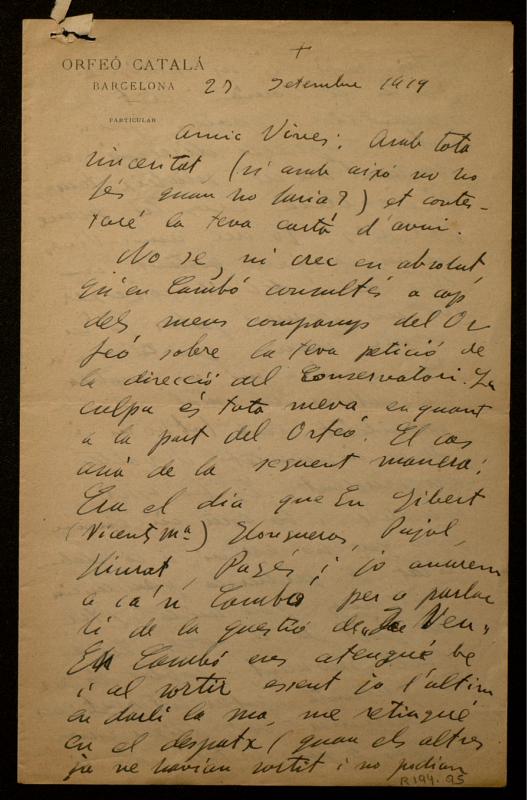 ORFEÓ CATALÁ
BARCELONA
PARTICULAR
27 Setembre 1919
Amic Vives: Amb tota
sinceritat, (si amb això no ho
fés quan ho faria?) et contes-
taré la teva carta d'avui.
No se, ni crec en absolut
qu'en Cambó consultés a cap
dels meus companys del Or
feó sobre la teva petició de
la direcció del Conservatori. La
culpa és tota meva en quant
a la part del Orfeó. El cas
anà de la seguent manera:
Era el dia que En Gibert
(Vicents Mª) Llongueras, Pujol,
Pagés i jo anarem
a ca'n Cambó per a parlar
li de la questió de "La Veu"
En Cambó ens atengué be
i al sortir essent jo l'ultim
en darli la ma, me retingué
en el despatx (quan els altres
ja ne havian sortit i no podian
R194.95